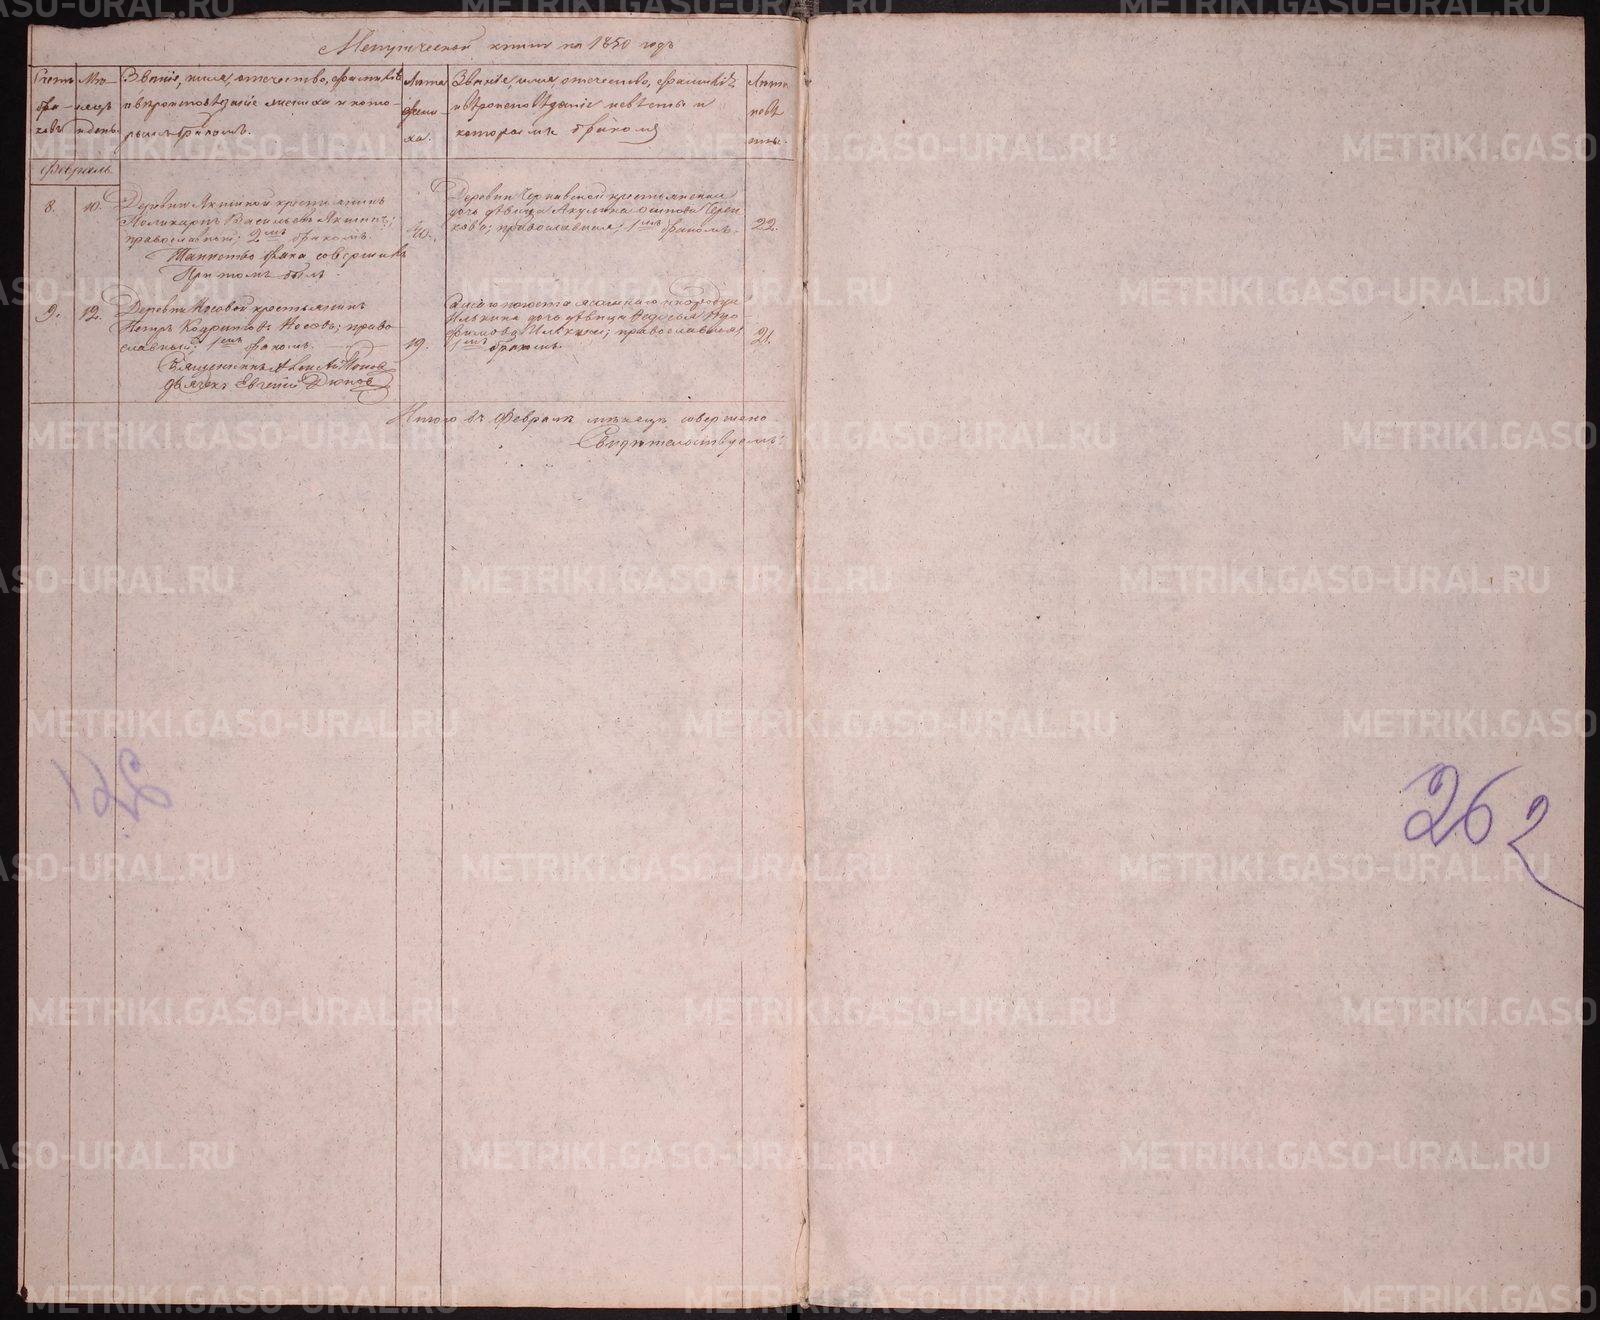 Метрической книги на 1850 годъ
Счетъ бра-ковъ
Мѣ-сяцъ и день.
Званіе, имя, отчество, фамилія
и вѣроисповѣданіе жениха и кото-
рымъ бракомъ.
Лѣта жени-ха.
Званіе, имя, отчество, фамилія
и вѣроисповѣданіе невѣсты и
которымъ бракомъ
Лѣта невѣ-сты.
Февраль.
8. 10.
Деревни Якшиной крестьянинъ
Поликарпъ Васильевъ Якшинъ;
православный; 2мъ бракомъ.
40.
Деревни крестьянская
дочь дѣвица Акулина Осипова
православная; 1мъ бракомъ.
22.
Таинство брака совершилъ
При томъ былъ
9. 12.
Деревни Носовой крестьянинъ
Петръ Кодратовъ Носовъ; право-
славный; 1мъ бракомъ.
19.
дочь дѣвица Ѳедосья
православная
1мъ бракомъ.
21.
Священникъ Алексѣй Поповъ
дьячекъ Евгеній
Итого въ Февралѣ мѣсяцѣ совершено
Свидѣтельствуемъ:
261
262
METRIKI.GASO-URAL.RU